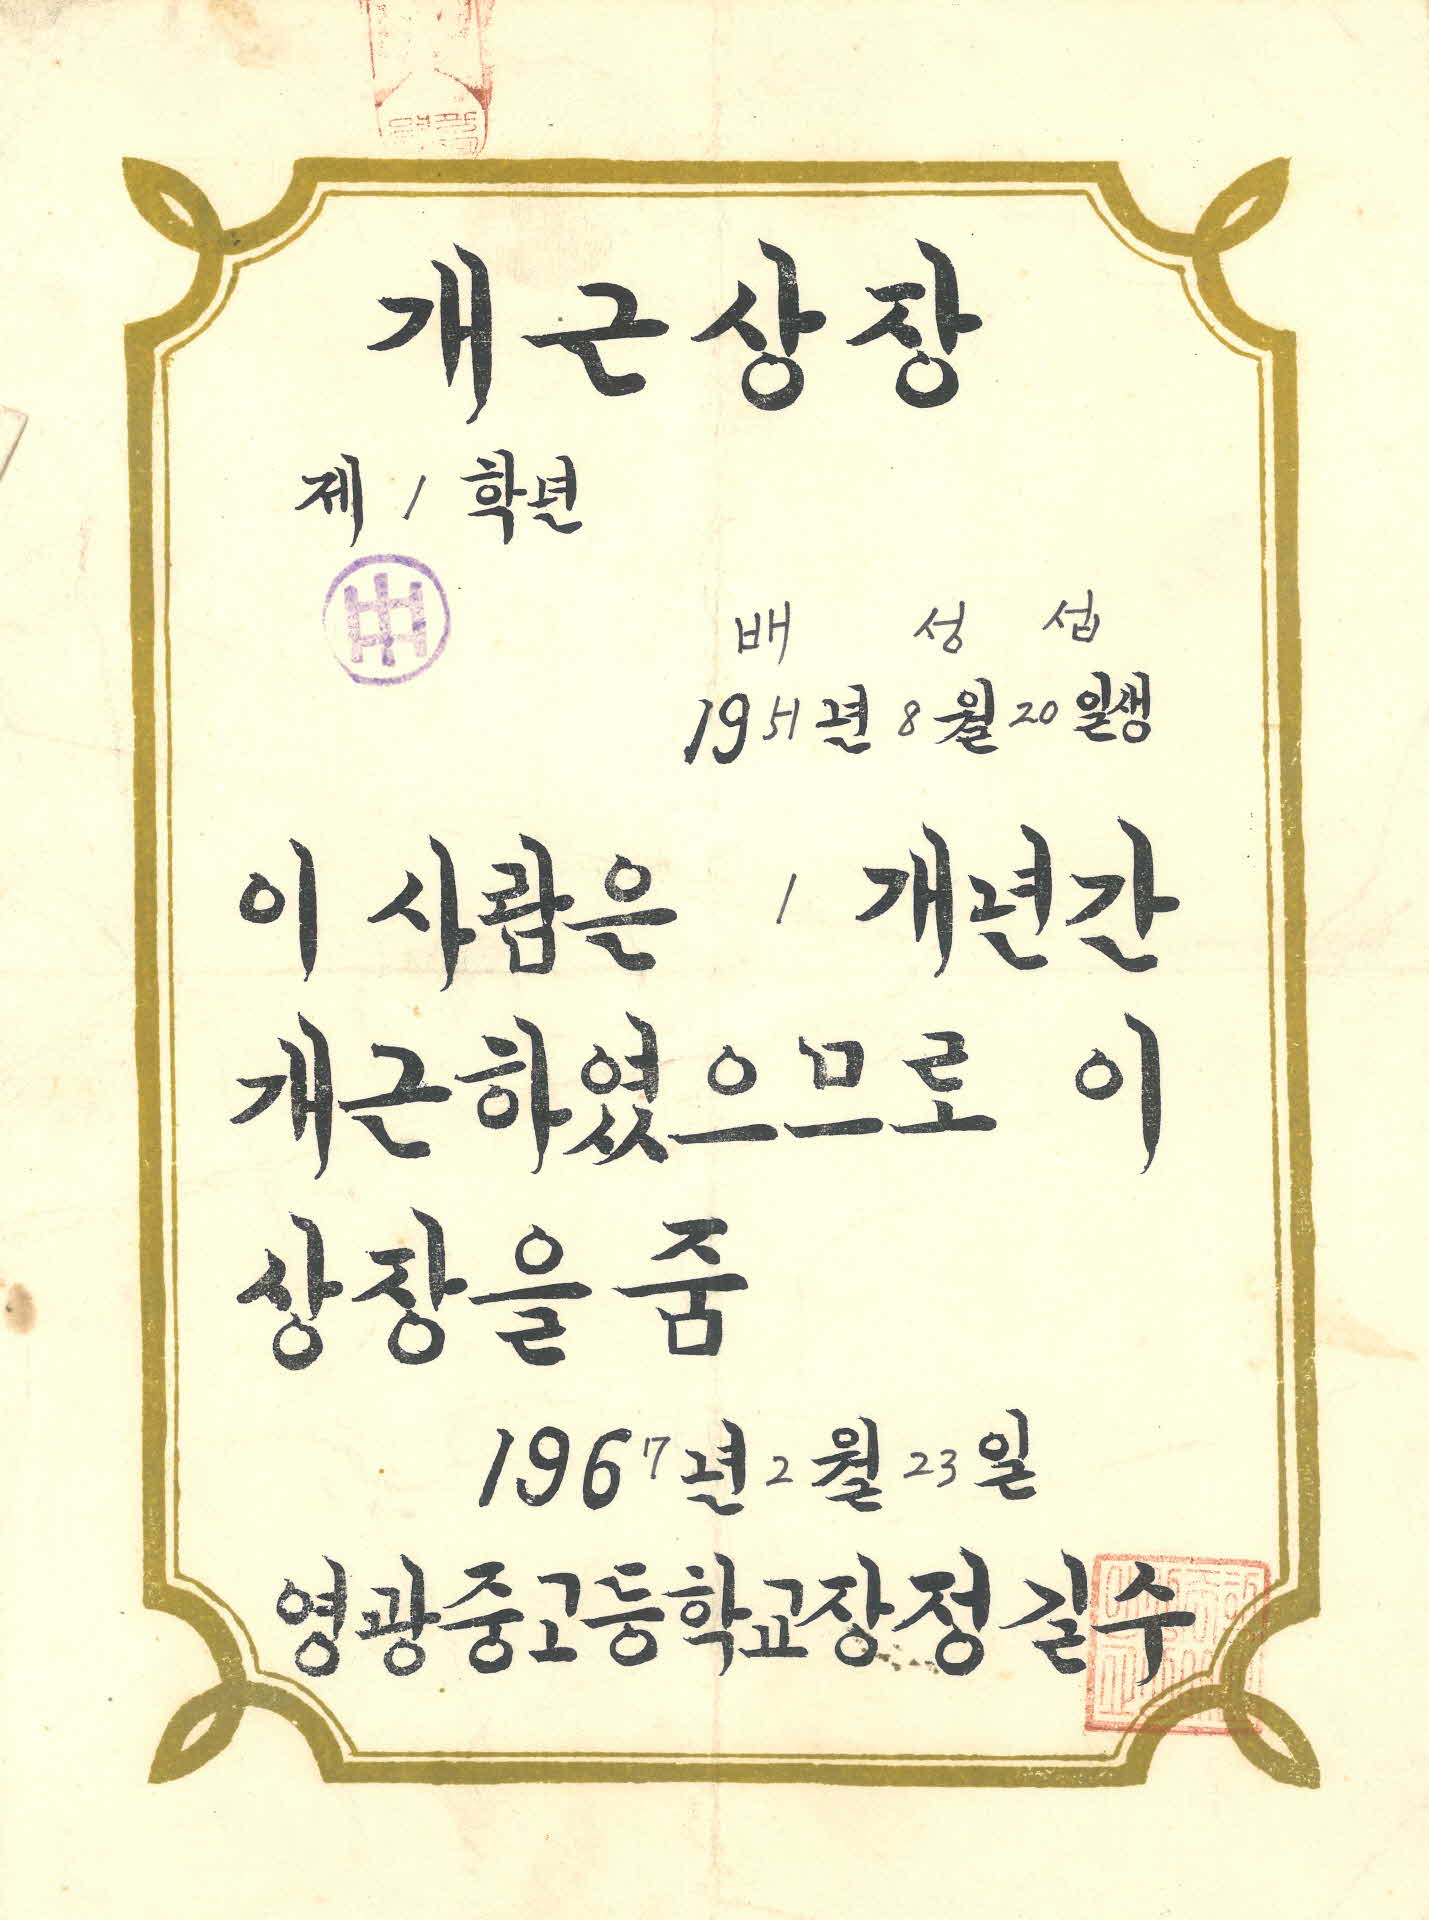 개근상장
제 1 학년
배 성 섭
1951년 8월 20일생
이 사람은 1 개년간
개근하였으므로 이
상장을 줌
1967년 2월 23일
영광중고등학교장 정길수